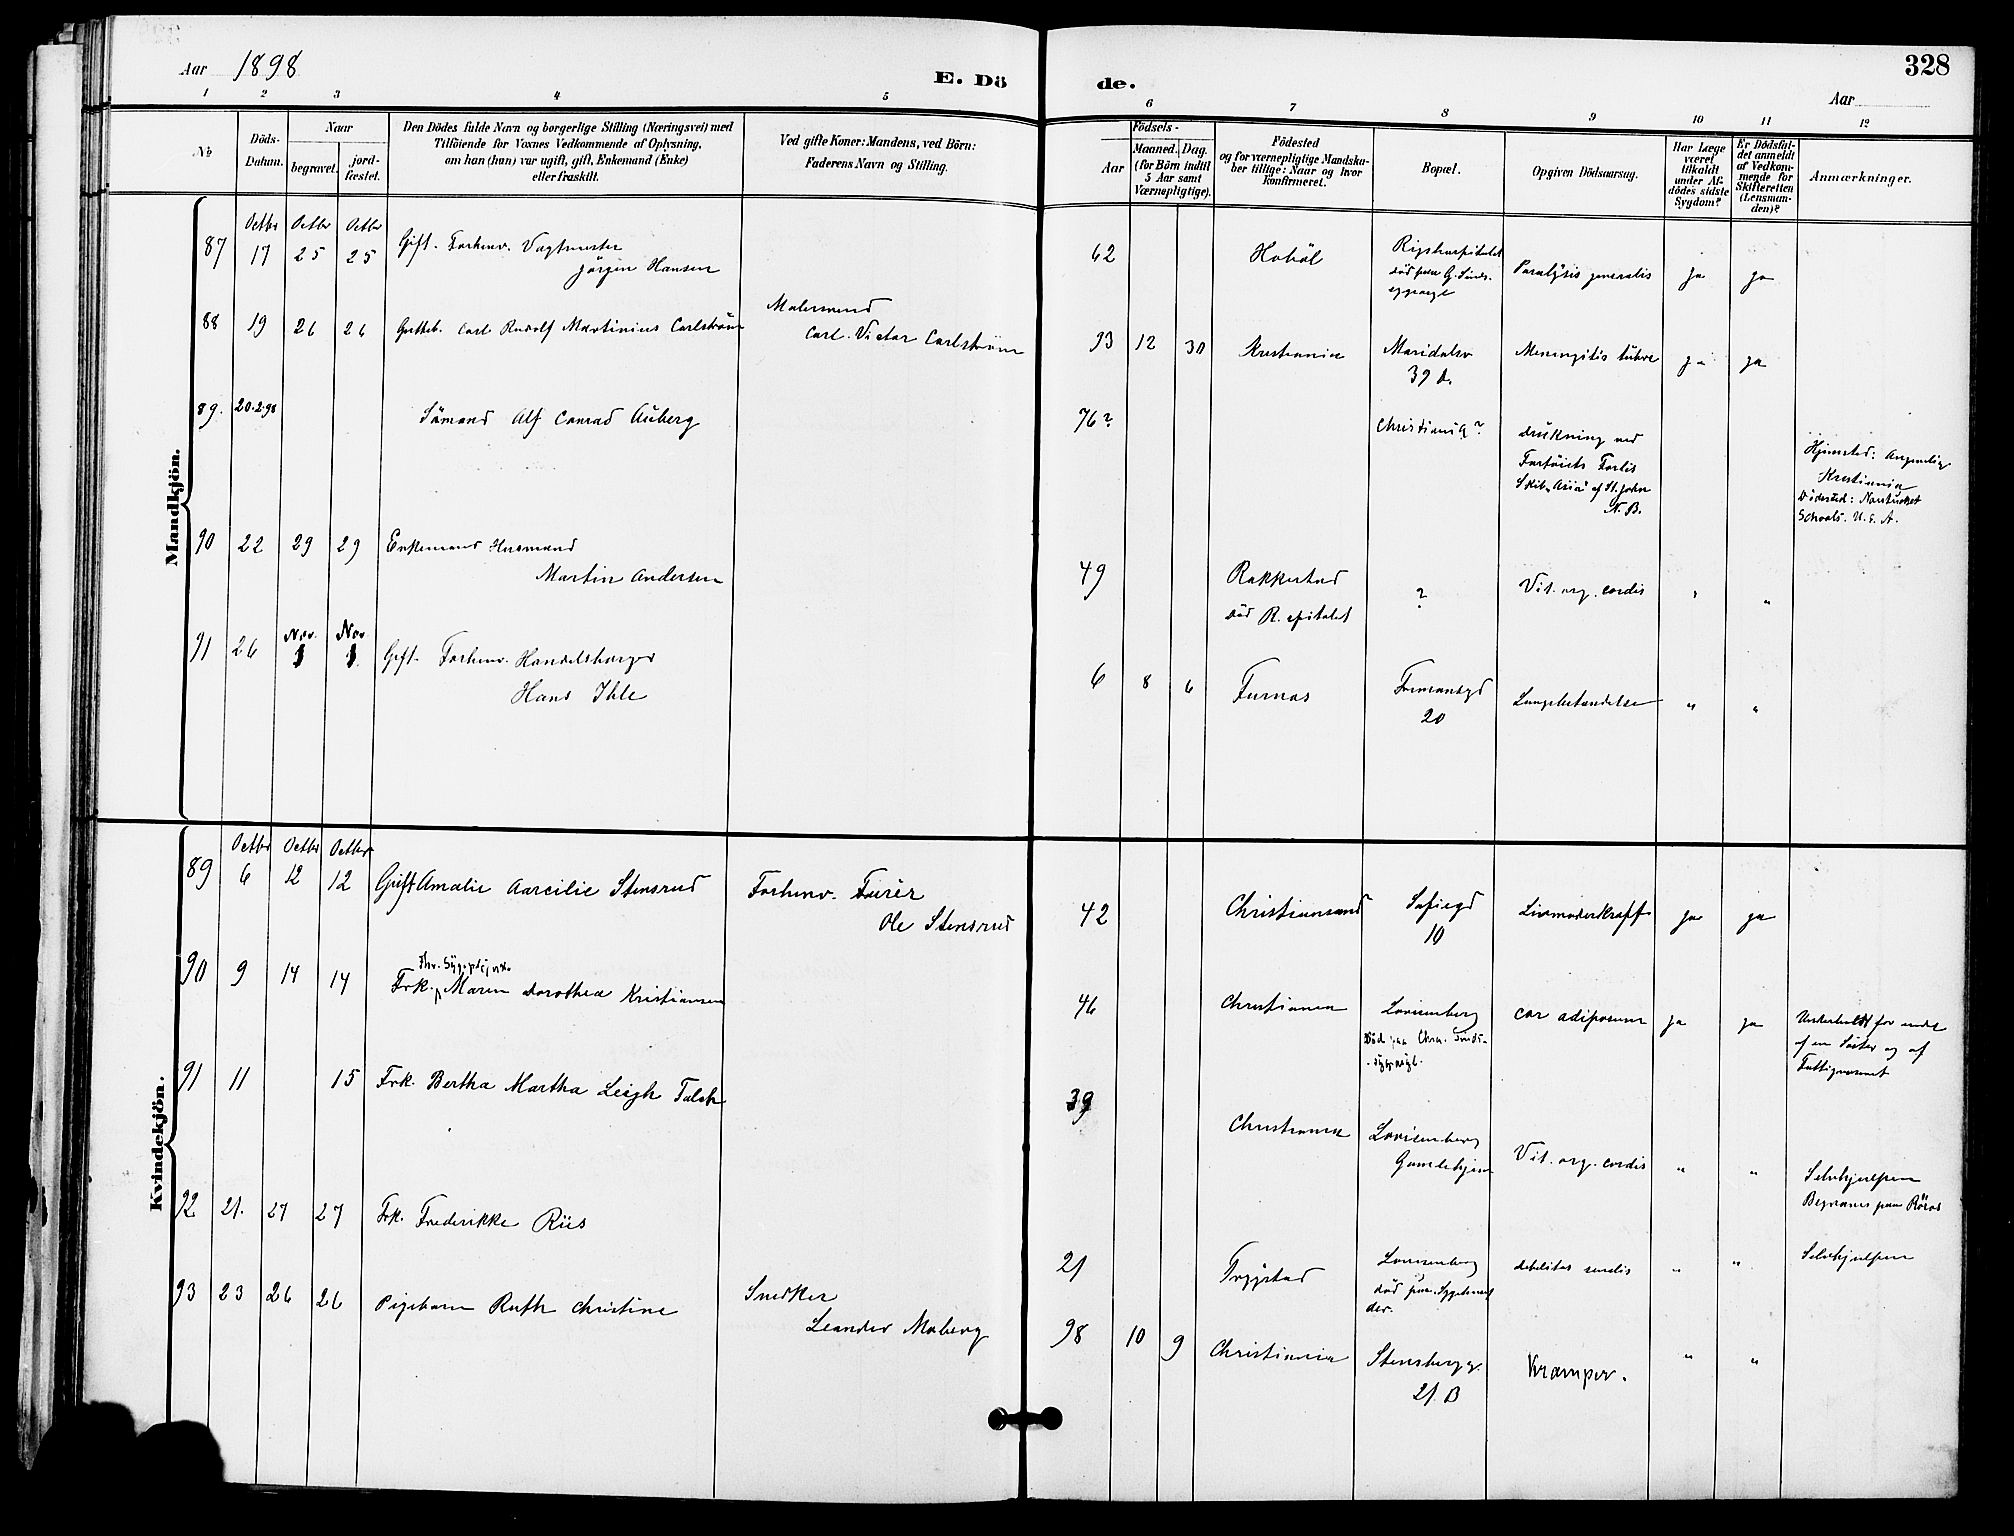 Aar 1898
E. Dö
de.
328
Aar
1 2 3 4 5 6 7 8 9 10 11 12
No
Döds-Datum.
Naar
begravet.
jord-fæstet.
Den Dödes fulde Navn og borgerlige Stilling (Næringsvei) med
Tilföiende for Voxnes Vedkommende af Oplysning,
om han (hun) var ugift, gift, Enkemand (Enke)
eller fraskilt.
Ved gifte Koner: Mandens, ved Börn:
Faderens Navn og Stilling.
Födsels-
Aar
Maaned. Dag.
(for Börn indtil
5 Aar samt
Værnepligtige).
Födested
og for værnepligtige Mandska-
ber tillige: Naar og hvor
konfirmeret.
Bopæl.
Opgiven Dödsaarsag.
Har Læge
været
tilkaldt
under Af-
dödes sidste
Sygdom?
Er Dödsfal-
det anmeldt
af Vedkom-
mende for
Skifteretten
(Lensman-
den)?
Anmærkninger.
Mandkjön.
Octbr Octbr Octbr
87 17 25 25 Gift. Forhenv. Vagtmester
Jörgen Hansen
62 Hoböl Rigshospitalet
död paa G. Sinds-
sygeasyl
Paralysis generalis ja ja
88 19 26 26 Gutteb. Carl Rudolf Martinius Carlström
Malersvend
Carl Victor Carlström
93 12 30 Kristiania Maridalsv
39 d.
Meningitis tuberc ja ja
89. 20.2.98 Sömand Alf Conrad Auberg
76? Christiania?
drukning ved
Fartöiets Forlis
Skib „Asia" af St. John
N. B.
Hjemsted: Angivelig
Kristiania
Dödssted: Nantucket
Schoals. U. S. A.
90 22 29 29 Enkemand Husmand
Martin Andersen
49 Rakkestad
död R. spitalet
? Vit. org. cordis " "
Nov. Nov.
91 26 1 1. Gift. Forhenv. Handelsborger
Hans Ihle
6 8 6 Furnæs
20
Lungebetændelse " "
Kvindekjön.
Octbr Octbr Octbr
89 6 12 12 Gift Amalie Stensrud
Forhenv. Furér
Ole Stensrud
42 Christiansand Sofiegd
10
Livmoderkræft ja ja
90 9 14 14 Frk. Maren Dorothea Kristiansen
46 Christiania Lovisenberg
Död paa Chra. Sinds-
sygeasyl.
cor adiposum ja ja
Underholdt for endel
af en Söster og af
Fattigvæsenet
91 11 15 Frk. Bertha Martha Leigh Falch
39 Christiania Lovisenberg
Gamlehjem
Vit. org. cordis " "
Selvhjulpen
Begraves paa Röros
92 21. 27 27 Frk. Frederikke Riis
21 Trygstad Lovisenberg
död paa Sygehuset
der.
debilitas senilis " " Selvhjulpen
93 23 26 26 Pigebarn Ruth Christine
Snedker
Leander Moberg
98 10 9 Christiania Stensbergg.
21. B
Kramper. " "